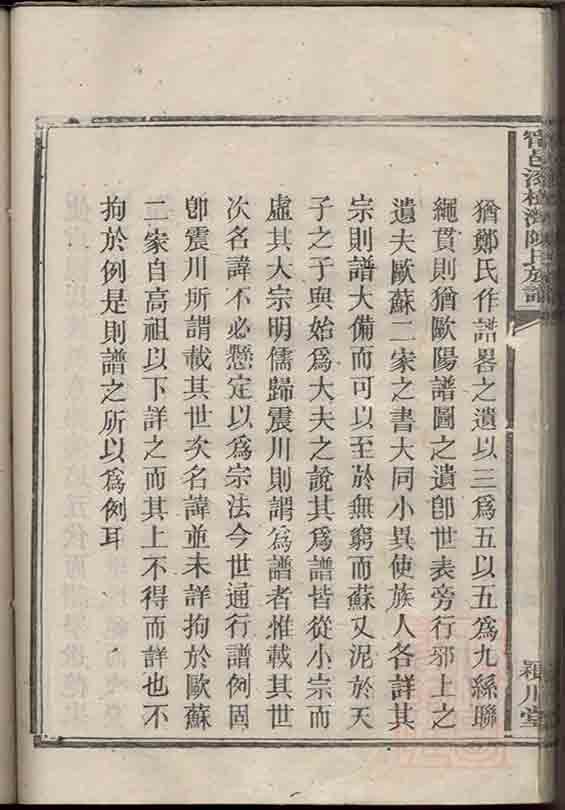 猶鄭氏作譜畧之遺以三爲五以五爲九絲聯
繩貫則猶歐陽譜圖之遺卽世表旁行邪上之
遺夫歐蘇二家之書大同小異使族人各詳其
宗則譜大備而可以至於無窮而蘇又泥於天
子之子與始爲大夫之說其爲譜皆從小宗而
虛其大宗明儒歸震川則謂爲譜者惟載其世
次名諱不必懸定以爲宗法今世通行譜例固
卽震川所謂載其世次名諱並未詳拘於歐蘇
二家自高祖以下詳之而其上不得而詳也不
拘於例是則譜之所以爲例耳
陳氏族譜
潁川堂